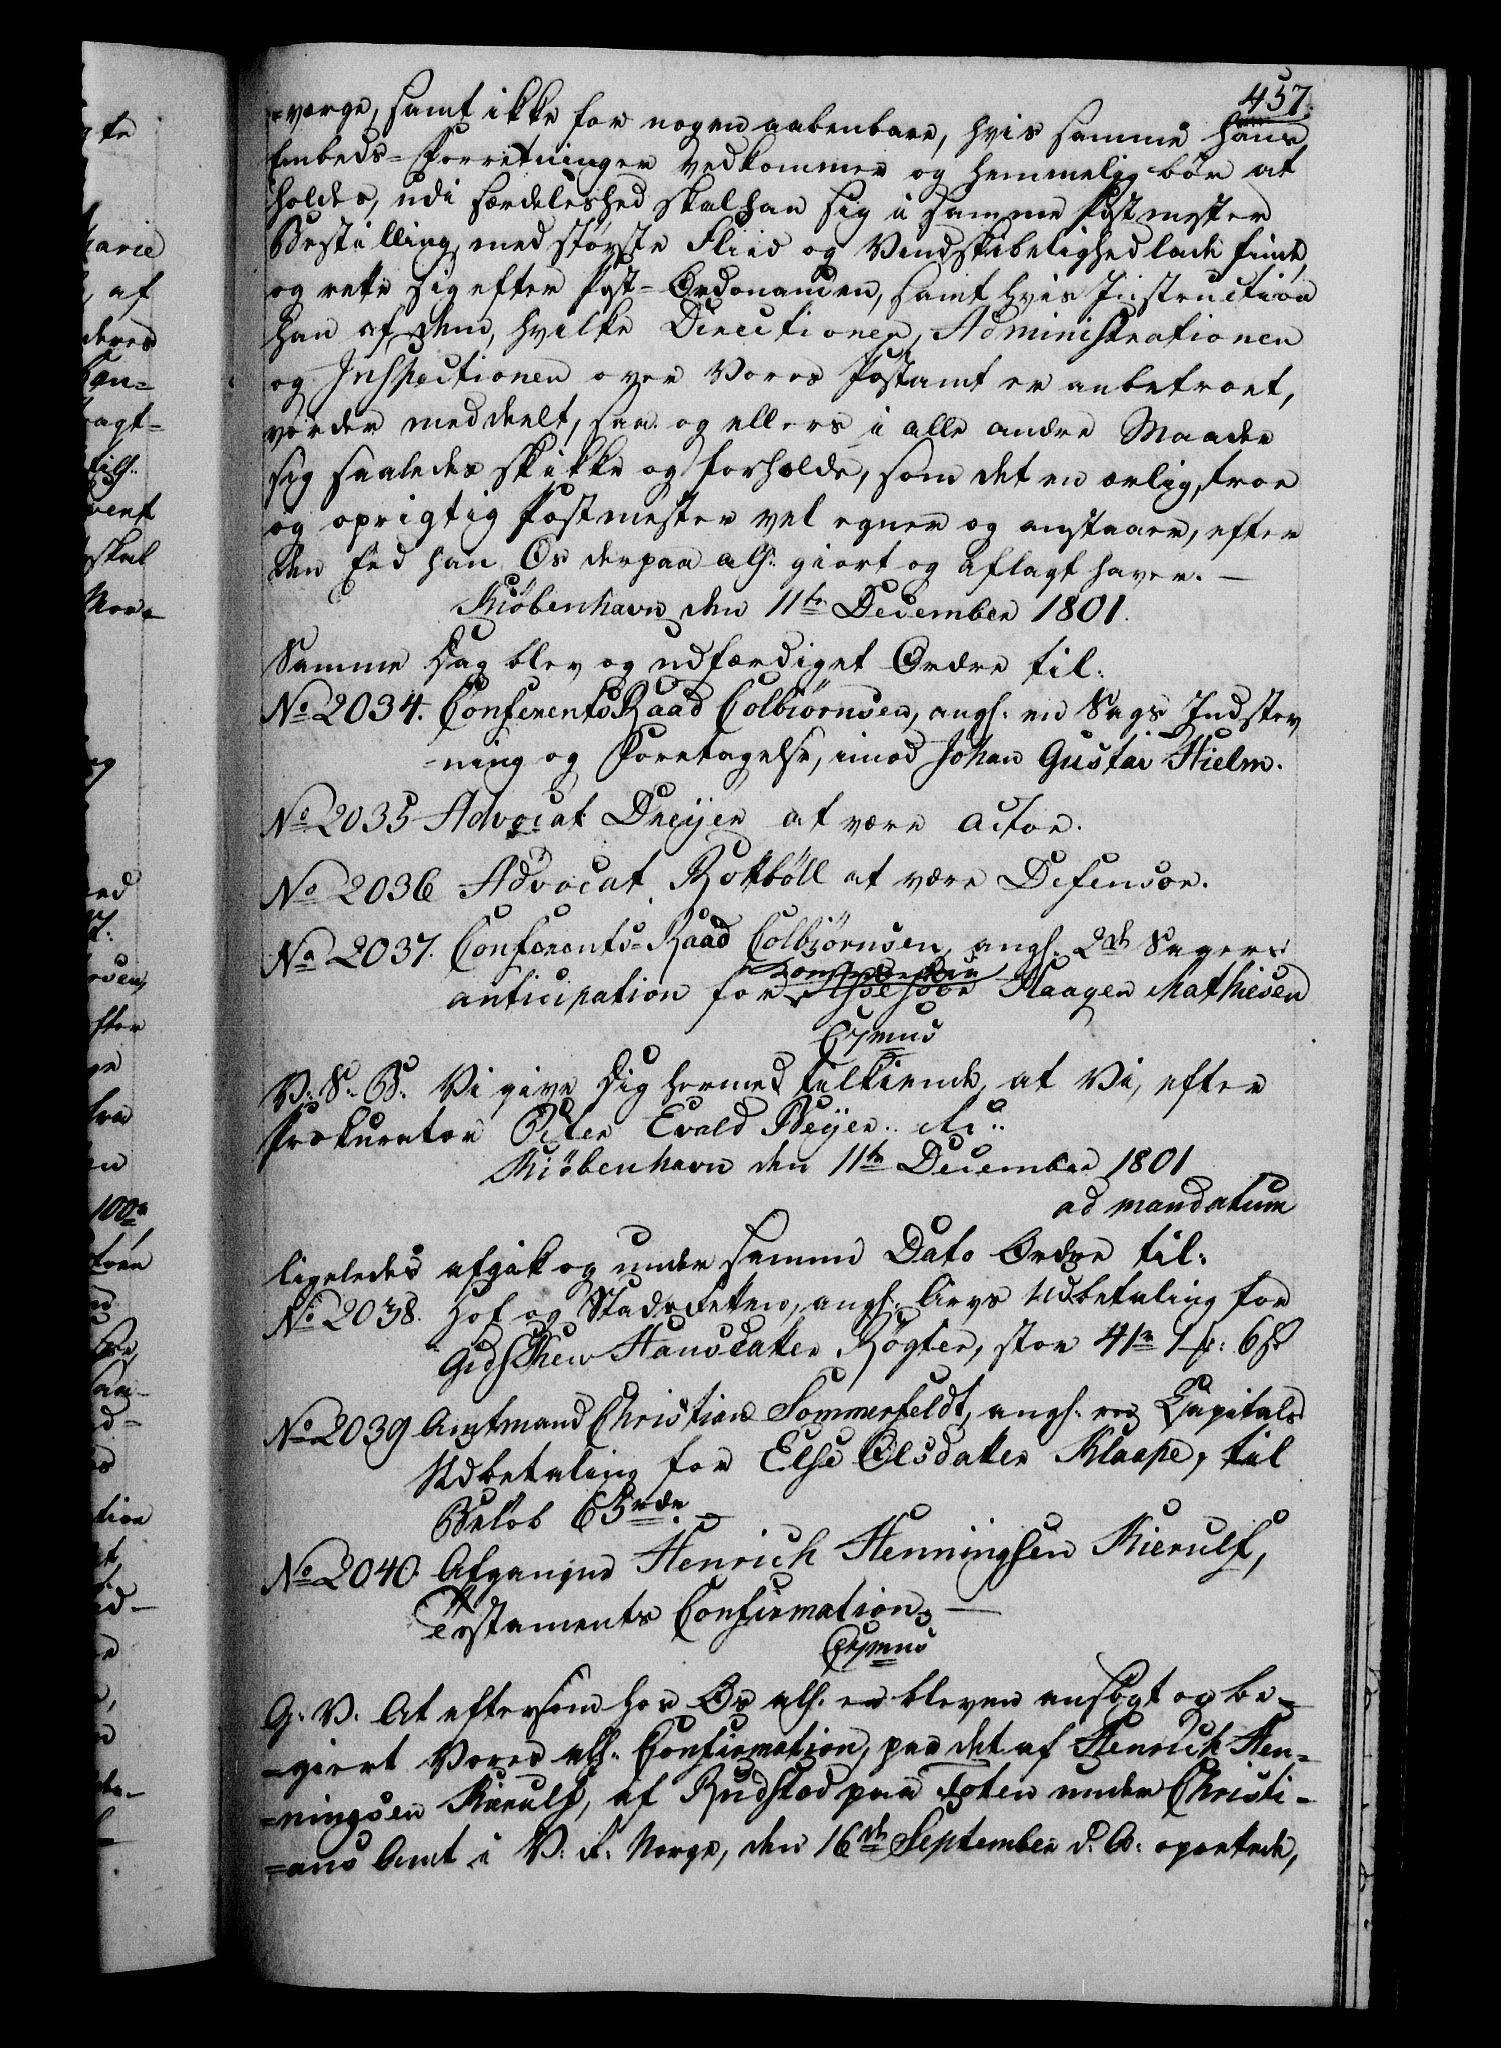 457.
=værge, samt ikke for nogen aabenbare, hvis samme hans
Embeds=Forretninger vedkommer og hemmelig bör at
holdes, udi særdeleshed skal han sig i samme Postmester
Bestilling med störste Fliid og Vindskibelighed lade finde,
og rette sig efter Post=Ordonancen, samt hvis Instruction
han af dem, hvilke Directionen, Administrationen
og Inspectionen over Vores Postamt er anbetroet,
vorder meddeelt, saa og ellers i alle andre Maader
sig saaledes skikke og forholde, som det en ærlig, troe
og oprigtig Postmester vel egner og anstaaer, efter
den Eed han Os derpaa alh: giort og aflagt haver. —
Kiöbenhavn den 11te December 1801.
Samme Dag blev og udfærdiget Ordre til:
No 2034. ConferentsRaad Colbiörnsen, angl: en Sags Indstev
=ning og Foretagelse, imod Johan Gustav Hielm.
No 2035 Advocat Dreijer at være Actor.
No 2036 Advocat Rottböll at være Defensor.
No 2037. Conferents=Raad Colbjörnsen, angl: 2de Sagers
anticipation for Assessor Haagen Mathiesen
Cr7mus
V: S: G: Vi give Dig hermed tilkiende, at Vi, efter
Prokurator Peter Evald Meijer.. etc:
Kiöbenhavn den 11te December 1801
ad mandatum
ligeledes afgik og under samme Dato Ordre til:
No 2038. Hof og Stads Retten, angl: Arvs Udbetaling for
Hansdatter Rögter, stor 41r 1 : 6 s
No 2039 Amtmand Christian Sommerfeldt, angl: en Capitals
Udbetaling for Else Olsdatter Klaape, til
Belöb 63rdr. —
No 2040. Afgangne Henrich Henningsen Kierulf,
Testaments Confirmation. —
Cr7mus
G. V. At eftersom hos Os alh: er bleven ansögt og be=
=giert Vores alh: Confirmation, paa det af Henrich Hen=
=ningsen Kierulf, af Rudstad paa Toten under Christi=
=ans Amt i V. R. Norge, den 16de September d: A: oprettede,